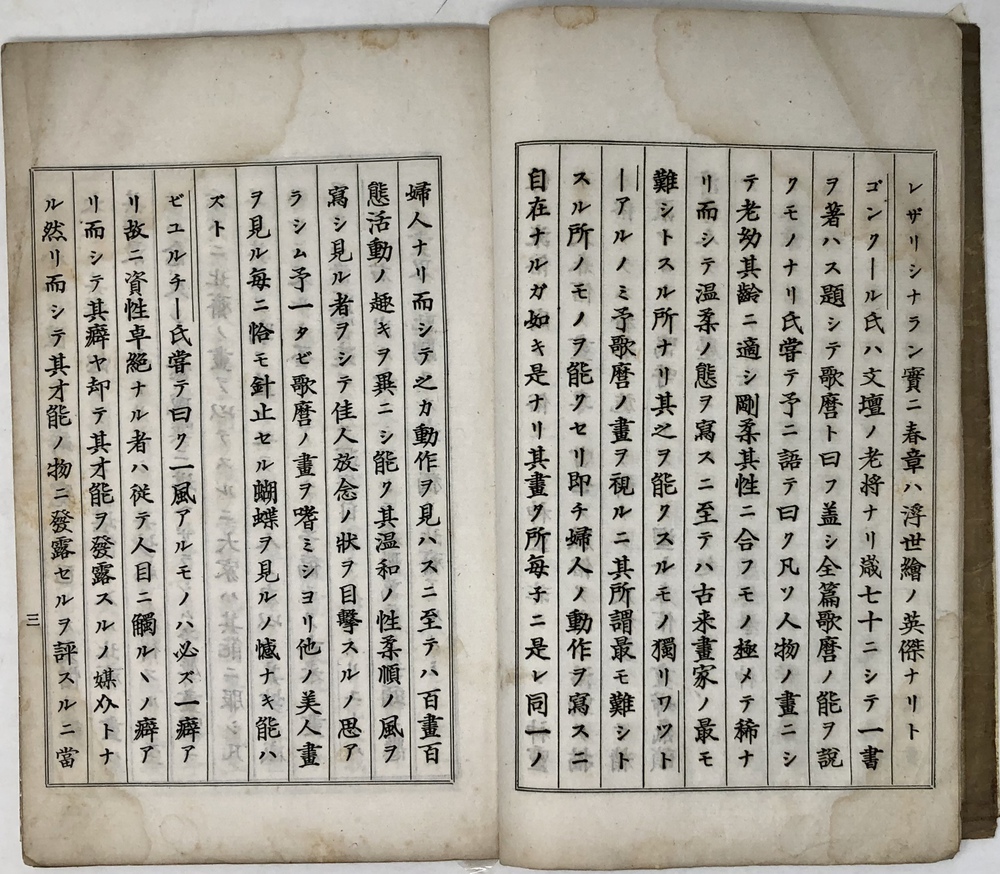 レザリシナラン實ニ春章ハ浮世繪ノ英傑ナリト
ゴンクール氏ハ文壇ノ老将ナリ歳七十ニシテ一書
ヲ著ハス題シテ歌麿ト曰フ盖シ全篇歌麿ノ能ヲ説
クモノナリ氏嘗テ予ニ語テ曰ク凡ソ人物ノ畫ニシ
テ老幼其齢ニ適シ剛柔其性ニ合フモノ極メテ稀ナ
リ而シテ温柔ノ態ヲ寫スニ至テハ古来畫家ノ最モ
難シトスル所ナリ其之ヲ能クスルモノ獨リワット
ーアルノミ予歌麿ノ畫ヲ視ルニ其所謂最モ難シト
スル所ノモノヲ能クセリ即チ婦人ノ動作ヲ寫スニ
自在ナルガ如キ是ナリ其畫ク所毎子ニ是レ同一ノ
婦人ナリ而シテ之カ動作ヲ見ハスニ至テハ百畫百
態活動ノ趣キヲ異ニシ能ク其温和ノ性柔順ノ風ヲ
寫シ見ル者ヲシテ佳人放念ノ狀ヲ目擊スルノ思ア
ラシム予一タビ歌麿ノ畫ヲ嗜ミシヨリ他ノ美人畫
ヲ見ル毎ニ恰モ針止セル蝴蝶ヲ見ルノ憾ナキ能ハ
ズト
ビユルチー氏嘗テ曰ク一風アルモノハ必ズ一癖ア
リ故ニ資性卓絶ナル者ハ従テ人目ニ觸ルヽノ癖ア
リ而シテ其癖ヤ却テ其才能ヲ發露スルノ媒介トナ
ル然リ而シテ其才能ノ物ニ發露セルヲ評スルニ當
三